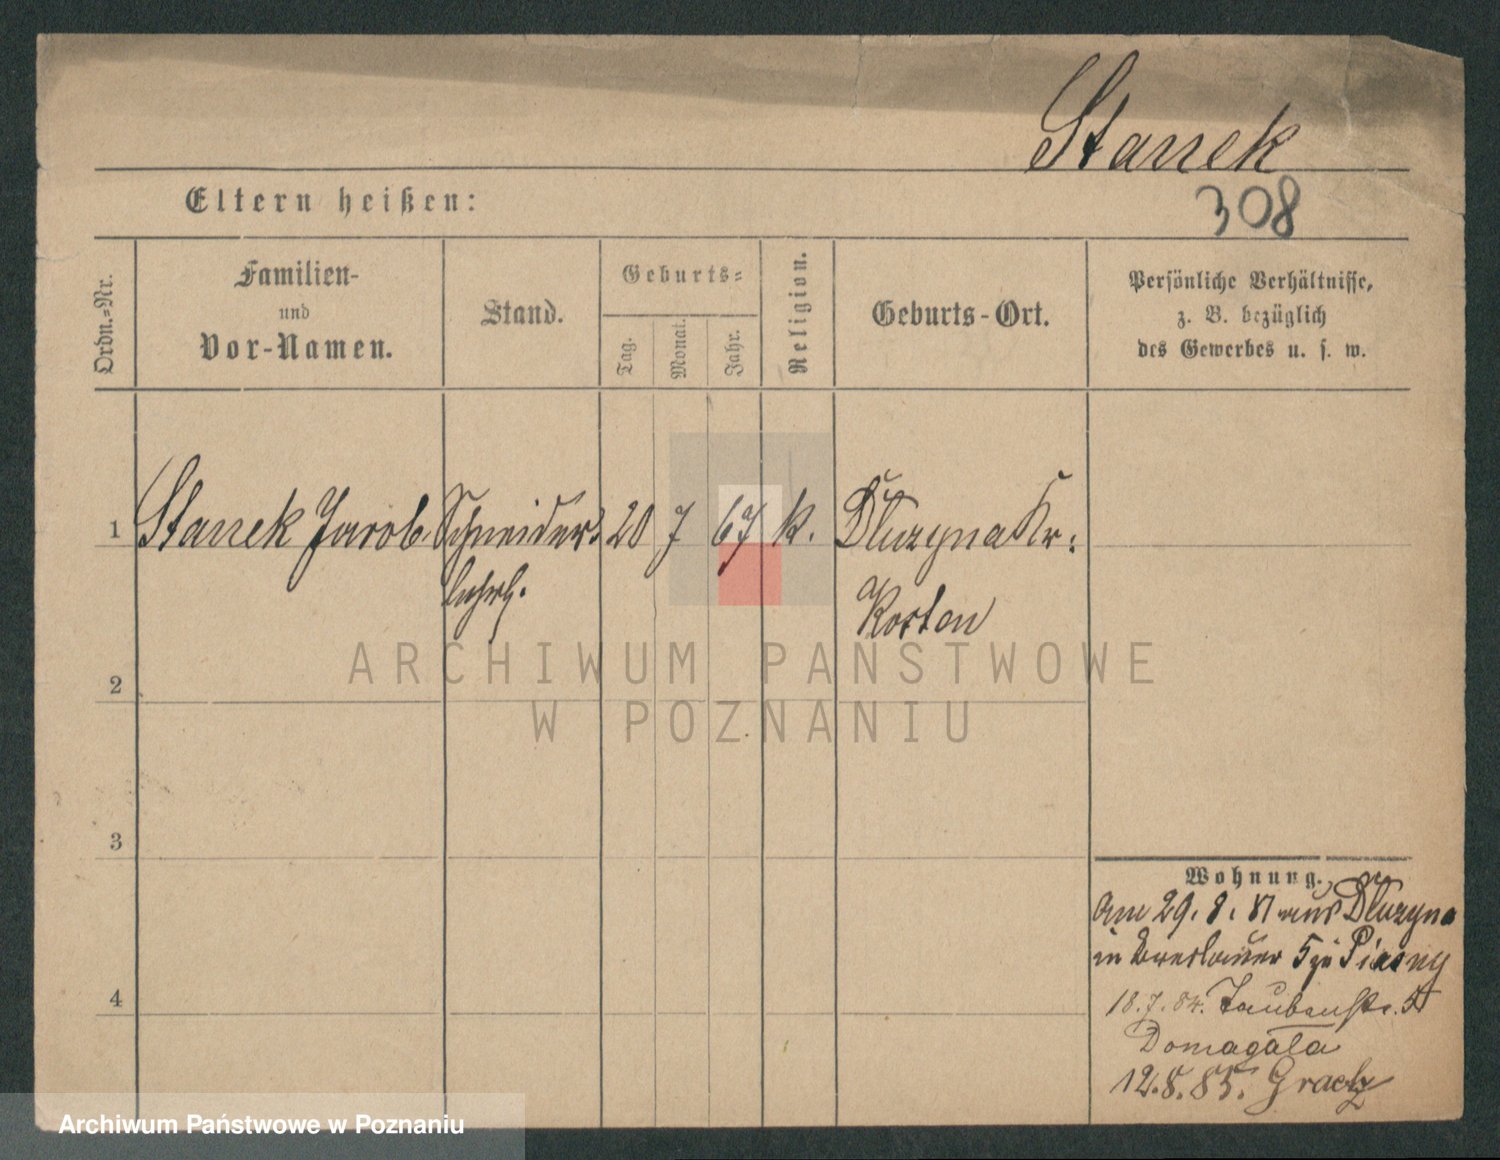 Stanek
308
Eltern heißen:
Ordn.-Nr.
Familien-
und
Vor-Namen.
Stand.
Geburts-
Tag.
Monat.
Jahr.
Religion.
Geburts-Ort.
Persönliche Verhältnisse,
z. B. bezüglich
des Gewerbes u. s. w.
1 Stanek Jacob. Schneider 20 7 67 k. Dluzyna Kr.
Kosten
2
ARCHIWUM PAŃSTWOWE
W POZNANIU
3
4
Wohnung.
Am 29. 8. 81 aus Dluzyna
in Breslauer 5 zu Piasny
18.7.84. Taubenstr. 5
Domagala
12.8.85. Graetz
Archiwum Państwowe w Poznaniu